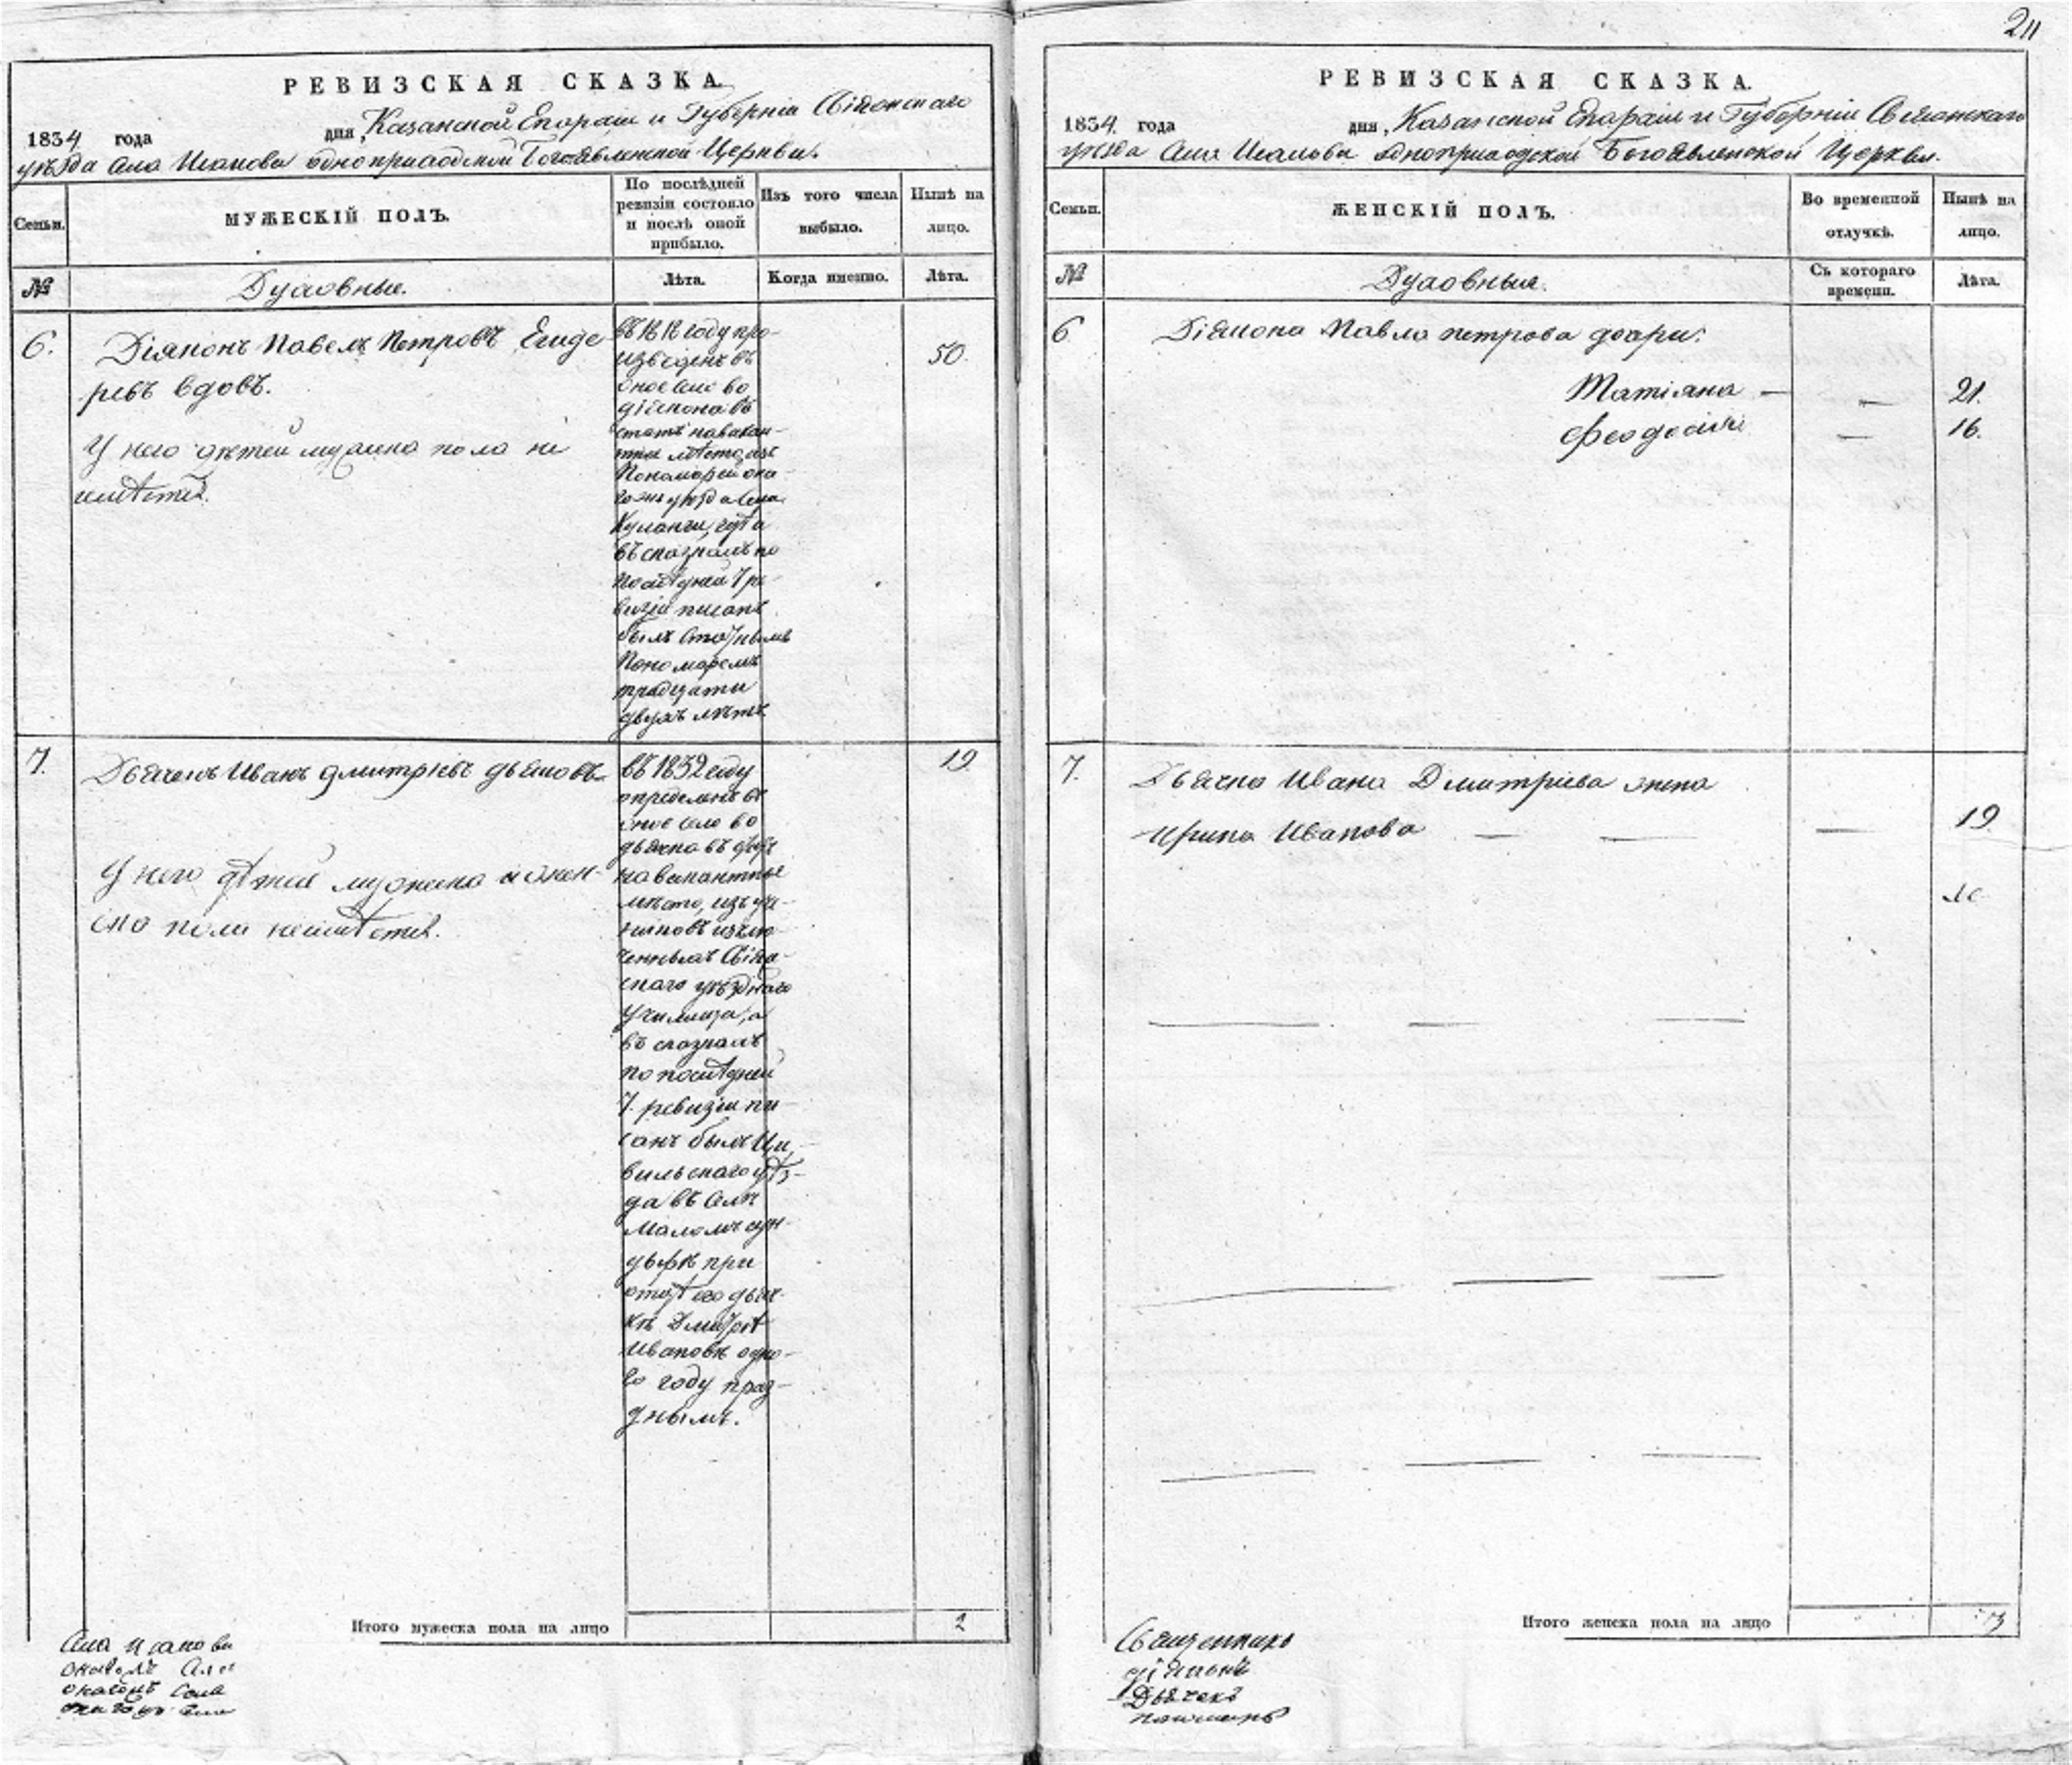 РЕВИЗСКАЯ СКАЗКА.
1834 года дня, Казанской Епархіи и Губерніи Свіяжскаго
уѣзда села Исакова одноприходской Богоявленской Церкви.
Семьи.
МУЖЕСКІЙ ПОЛЪ.
По послѣдней
ревизіи состояло
и послѣ оной
прибыло.
Изъ того числа
выбыло.
Нынѣ на
лицо.
№
Духовные.
Лѣта.
Когда именно.
Лѣта.
6.
Діяконъ Павелъ Петровъ
вдовъ.
У него дѣтей мужеска пола не
имѣется.
въ 1818 году про-
изведенъ въ
оное село во
діякона въ
мѣсто, изъ
уѣзда села
въ сказкахъ по
послѣдней 7 ре-
визіи писанъ
былъ
Пономаремъ
тридцати
двухъ лѣтъ
50.
7.
Дьячекъ Иванъ Дмитріевъ
У него дѣтей мужеска и жен-
ска пола неимѣется.
въ 1832 году
опредѣленъ въ
оное село во
дьячка въ
на вакантное
мѣсто, изъ уче-
никовъ исклю-
ченныхъ Свіяж-
скаго уѣзднаго
училища, а
въ сказкахъ
по послѣдней
7. ревизіи пи-
санъ былъ Ци-
вильскаго уѣз-
да въ селѣ
Маломъ сун-
дырѣ при
отцѣ его дьяч-
кѣ Дмитріѣ
Ивановѣ одно-
го году празд-
нымъ.
19
Итого мужеска пола на лицо
2
Села Исакова
онагожъ Села
онагожъ Села
онагожъ Села
211
РЕВИЗСКАЯ СКАЗКА.
1834. года дня, Казанской Епархіи и Губерніи Свіяжскаго
уѣзда Села Исакова одноприходской Богоявленской Церкви.
Семьи.
ЖЕНСКІЙ ПОЛЪ.
Во временной
отлучкѣ.
Нынѣ на
лицо.
№
Духовныя.
Съ котораго
времени.
Лѣта.
6
Діякона Павла Петрова дочери:
Татіяна — — 21.
Феодосія — 16.
7.
Дьячка Ивана Дмитріева жена
Ирина Иванова — — — 19
Итого женска пола на лицо
3
Священникъ
Діяконъ
Дьячекъ